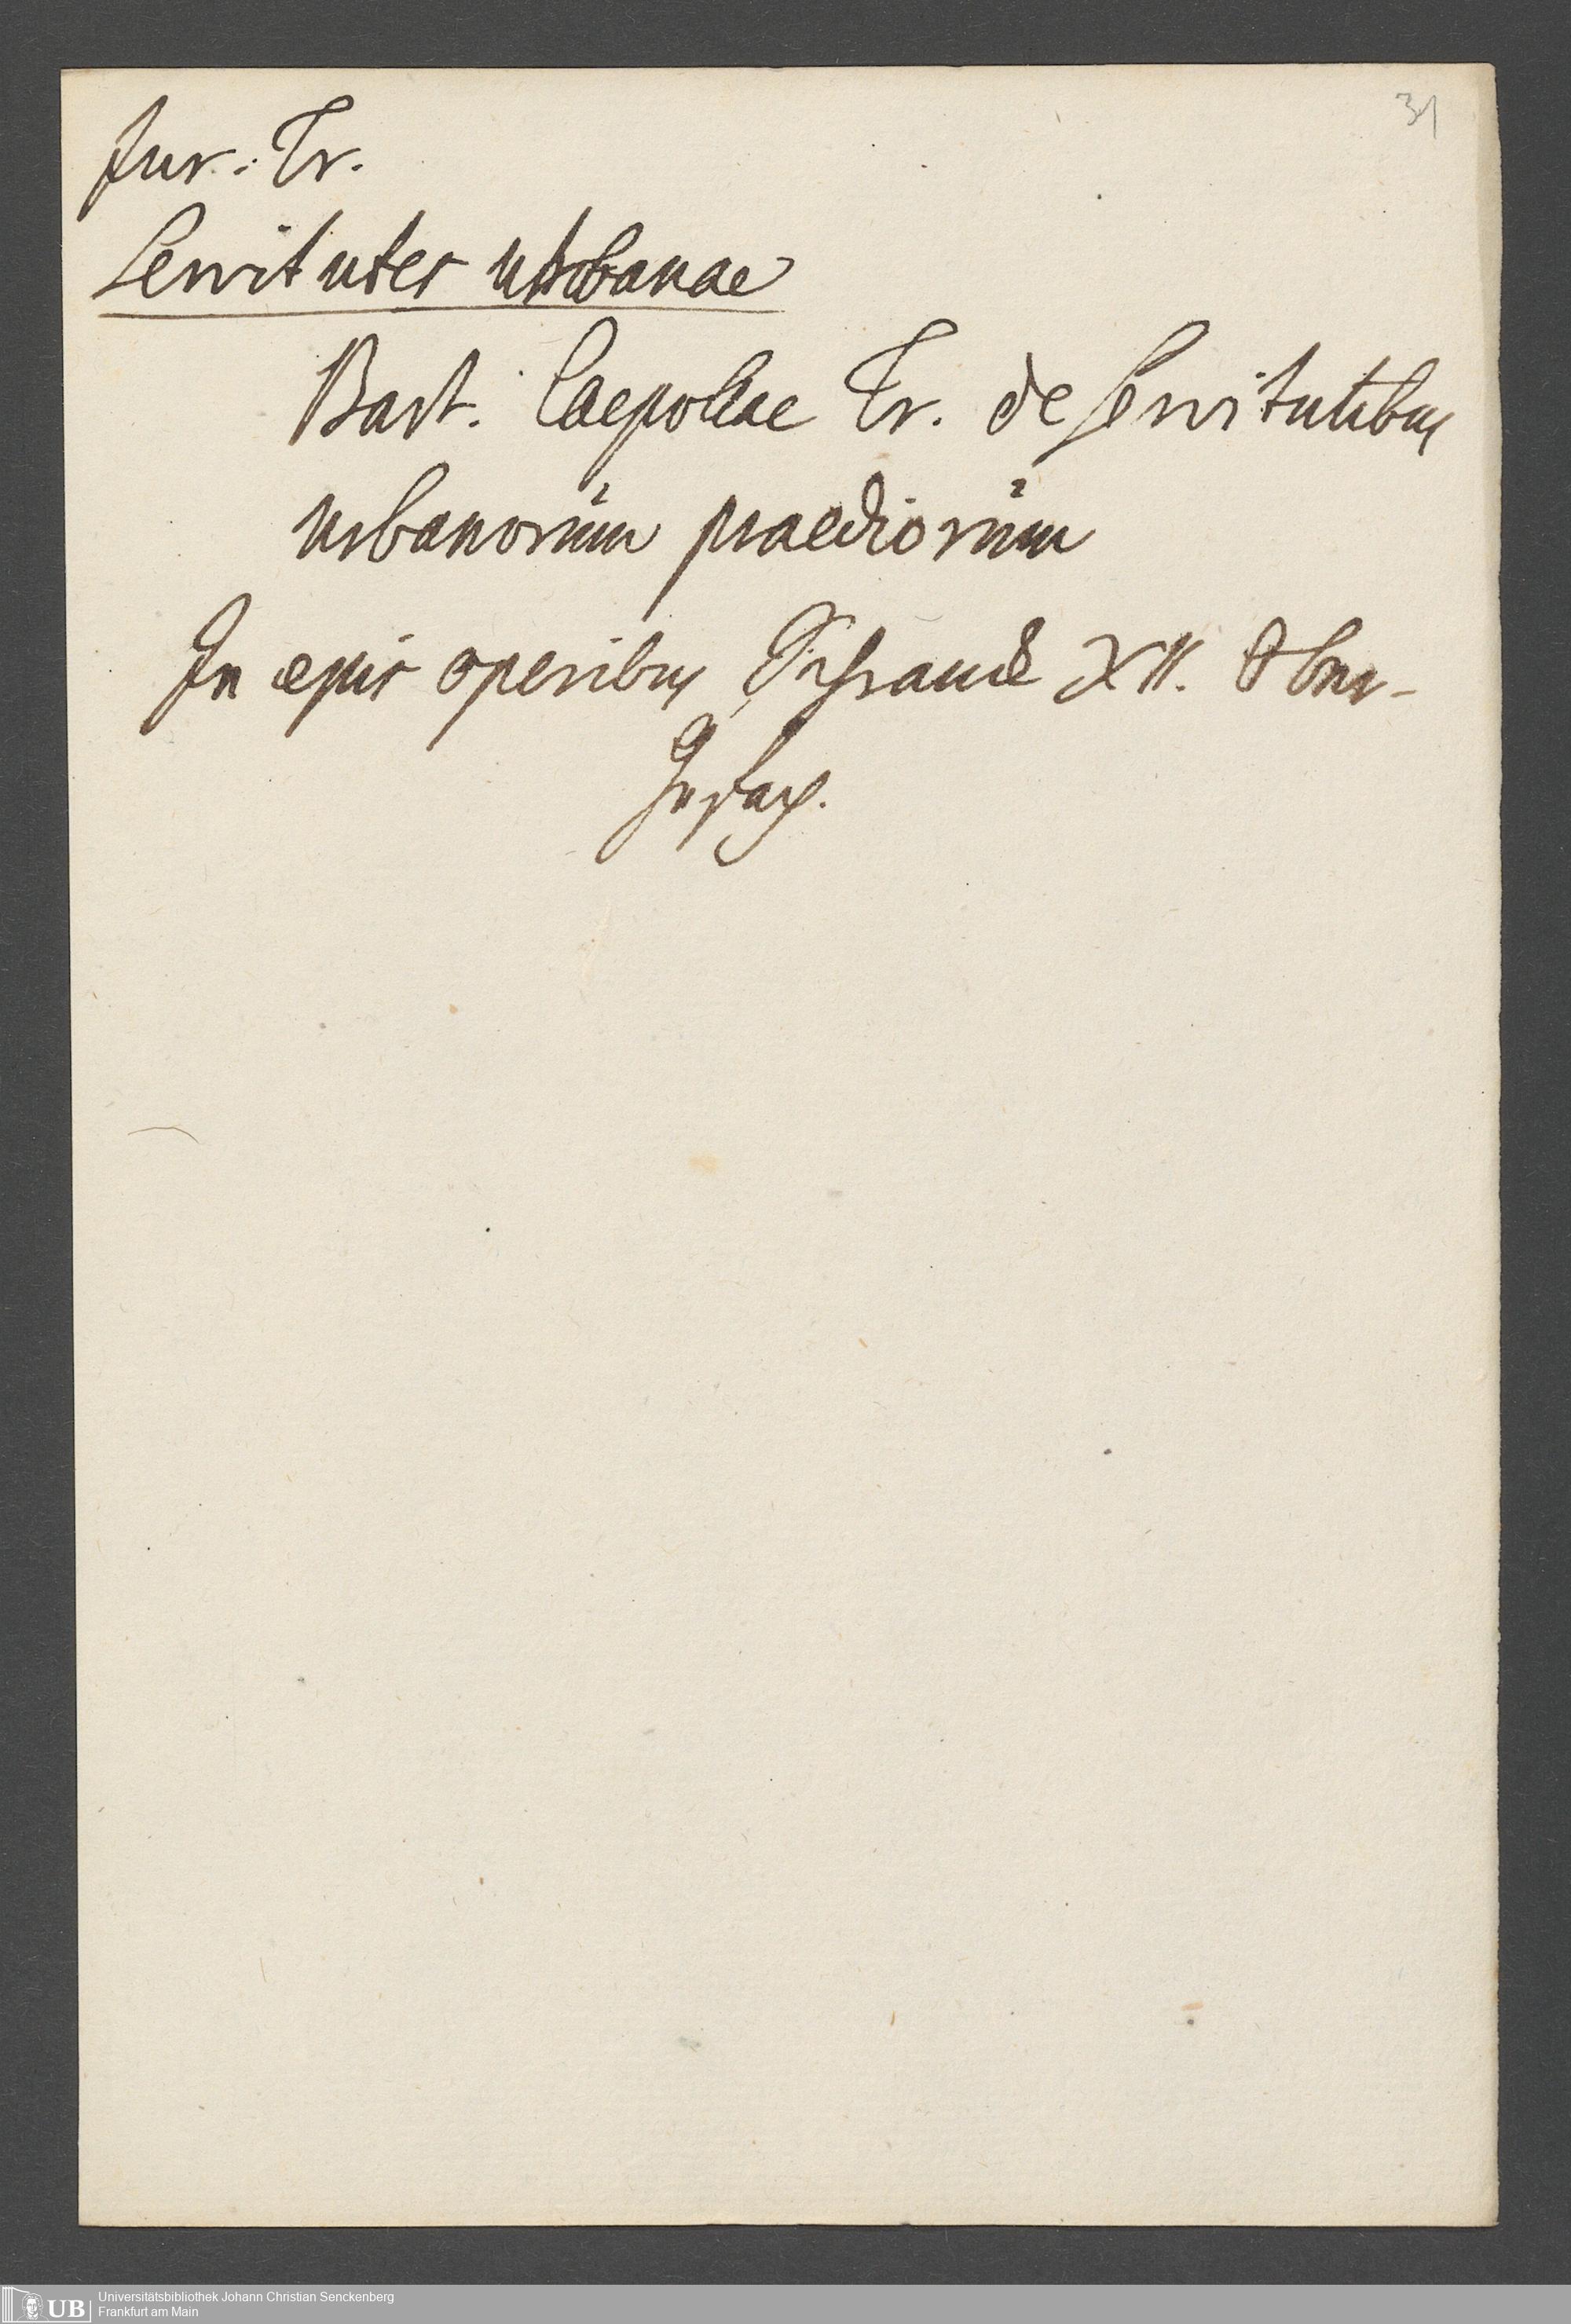 31
Jur. Tr.
Servitutes urbanae
Bart. Caepollae Tr. de Servitutibus
urbanorum praediorum
In ejus operibus Schranck XII. Ober-
Gefach.
UB Universitätsbibliothek Johann Christian Senckenberg
Frankfurt am Main